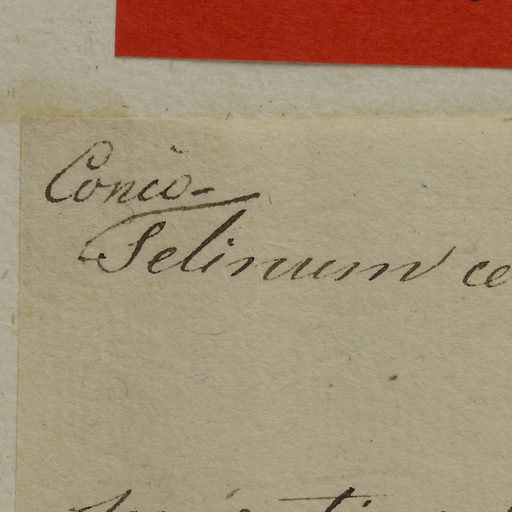 Conio-
Selinum ce